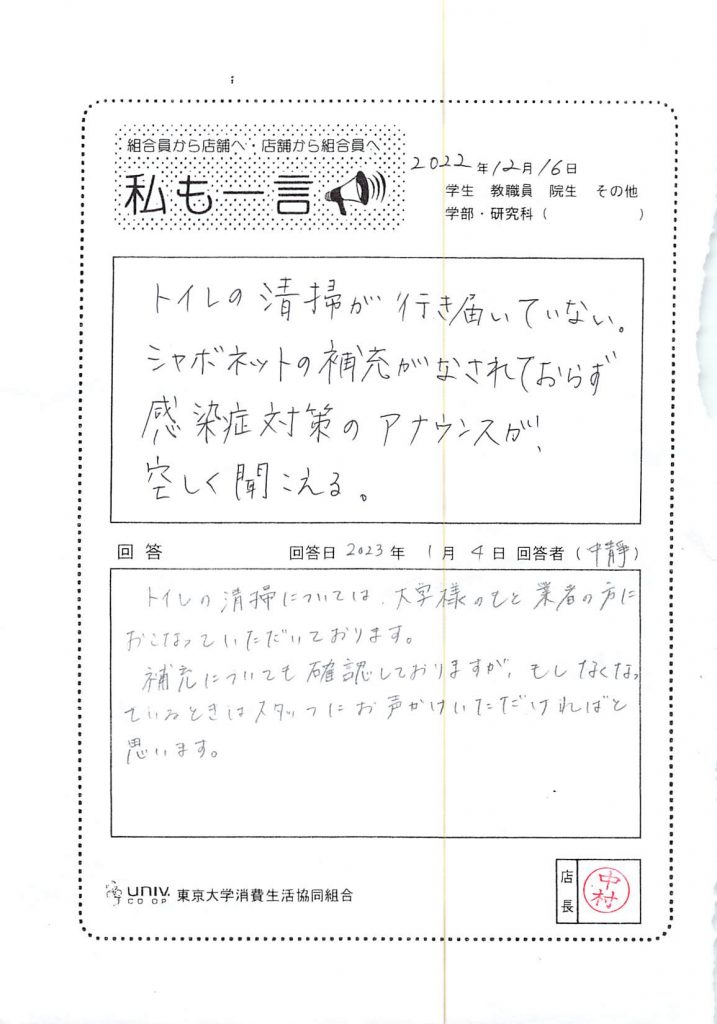 組合員から店舗へ・店舗から組合員へ
私も一言
2022年12月16日
学生 教職員 院生 その他
学部・研究科( )
トイレの清掃が行き届いていない。
シャボネットの補充がなされておらず
感染症対策のアナウンスが、
空しく聞こえる。
回答 回答日 2023年 1月 4日 回答者(中静)
トイレの清掃については、大学様のもと業者の方に
おこなっていただいております。
補充についても確認しておりますが、もしなくなっ
ているときはスタッフにお声かけいただければと
思います。
UNIV. CO-OP 東京大学消費生活協同組合
店長
中村